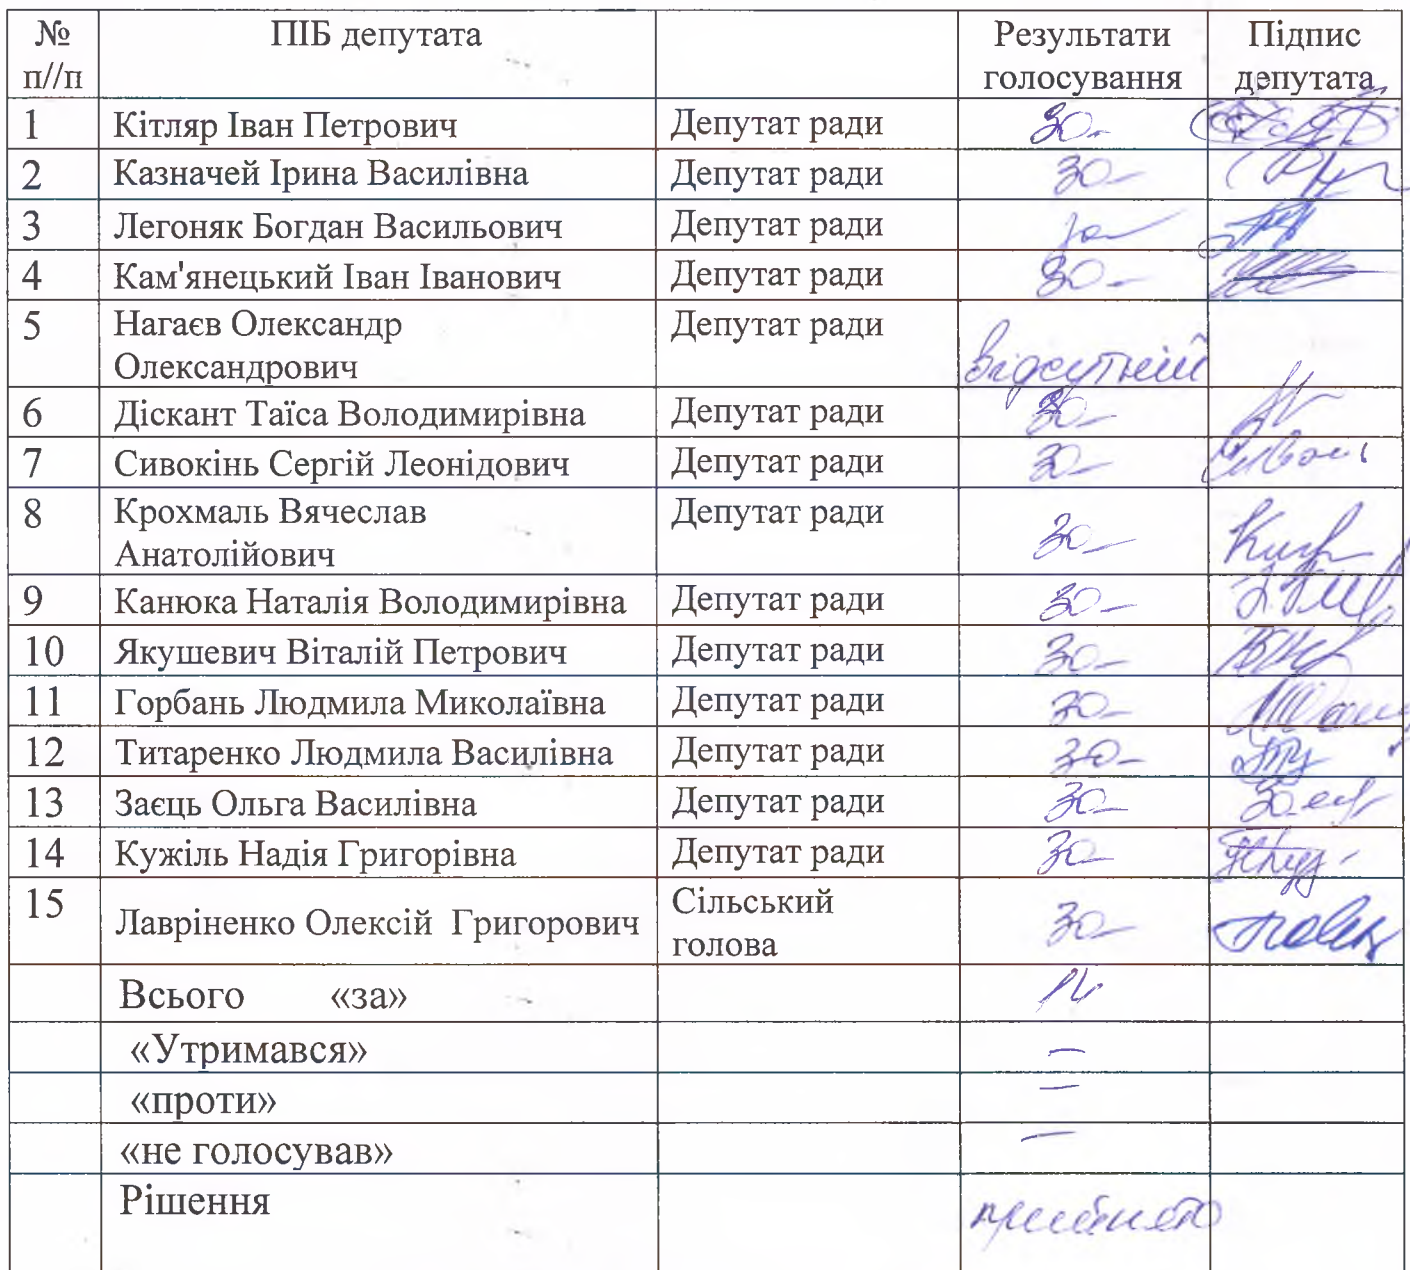 № п//п ПІБ депутата Результати голосування Підпис депутата
1 Кітляр Іван Петрович Депутат ради За
2 Казначей Ірина Василівна Депутат ради За
3 Легоняк Богдан Васильович Депутат ради за
4 Кам'янецький Іван Іванович Депутат ради За
5 Нагаєв Олександр Олександрович Депутат ради відсутній
6 Діскант Таїса Володимирівна Депутат ради За
7 Сивокінь Сергій Леонідович Депутат ради За
8 Крохмаль Вячеслав Анатолійович Депутат ради За
9 Канюка Наталія Володимирівна Депутат ради За
10 Якушевич Віталій Петрович Депутат ради За
11 Горбань Людмила Миколаївна Депутат ради За
12 Титаренко Людмила Василівна Депутат ради За
13 Заєць Ольга Василівна Депутат ради За
14 Кужіль Надія Григорівна Депутат ради За
15 Лавріненко Олексій Григорович Сільський голова За
Всього «за» 14
«Утримався» –
«проти» –
«не голосував» –
Рішення прийнято